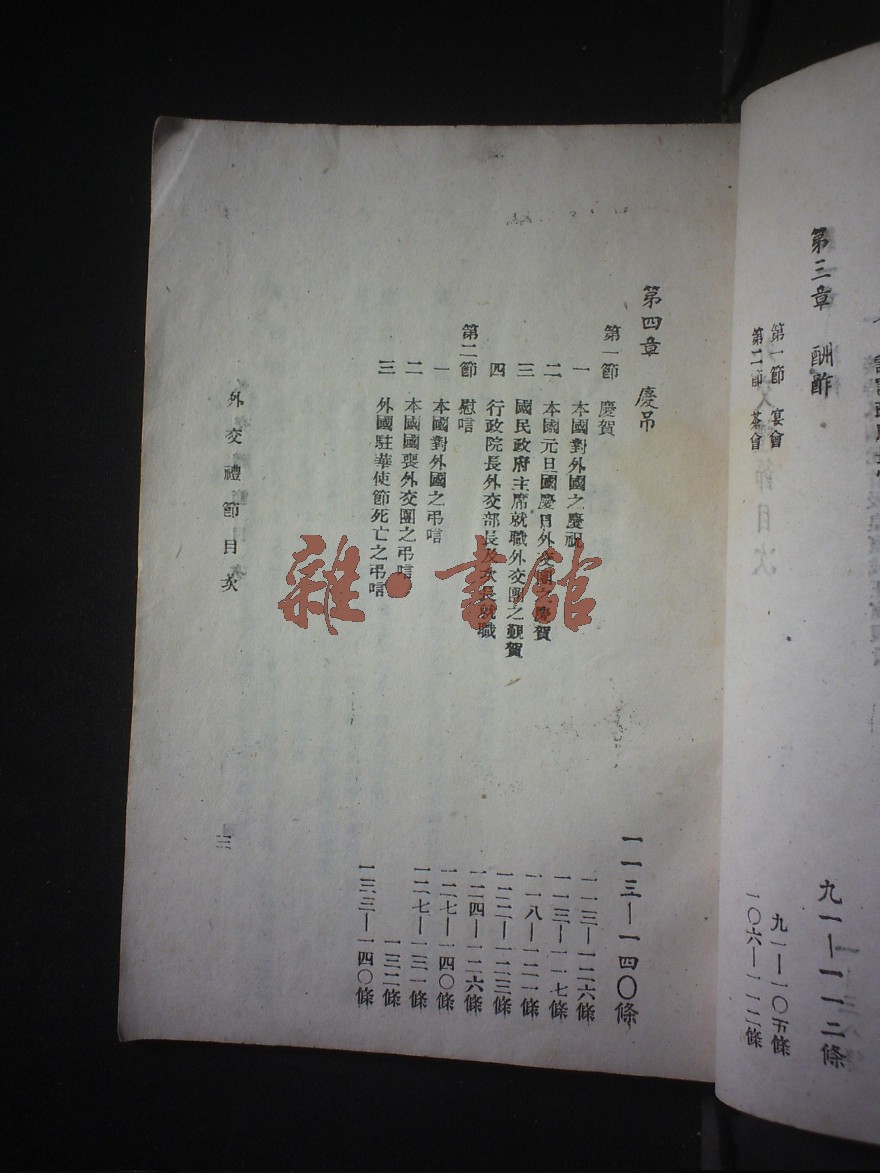 第三章 酬酢 九一—一一二條
第一節 宴會 九一—一〇五條
第二節 茶會 一〇六—一一二條
第四章 慶吊 一一三—一四〇條
第一節 慶賀 一一三—一二六條
一 本國對外國之慶祝 一一三—一一七條
二 本國元旦國慶日外交團之慶賀 一一八—一二一條
三 國民政府主席就職外交團之覲賀 一二二—一二三條
四 行政院長外交部長及次長就職 一二四—一二六條
第二節 慰唁 一二七—一四〇條
一 本國對外國之弔唁 一二七—一三一條
二 本國國喪外交團之弔唁 一三二條
三 外國駐華使節死亡之弔唁 一三三—一四〇條
外交禮節目次
三
雜·書館